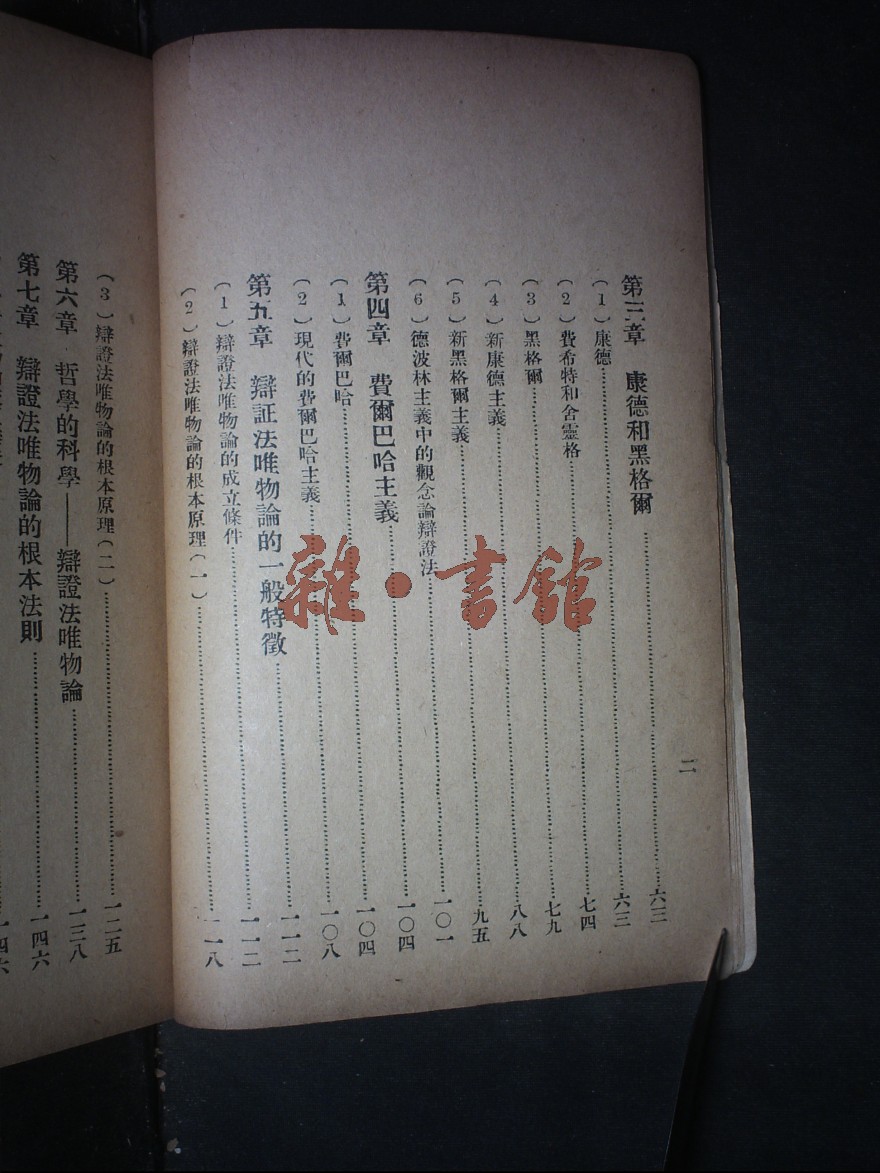 二
第三章　康德和黑格爾……六三
(1)康德……六三
(2)費希特和舍靈格……七四
(3)黑格爾……七九
(4)新康德主義……八八
(5)新黑格爾主義……九五
(6)德波林主義中的觀念論辯證法……一〇一
第四章　費爾巴哈主義……一〇四
(1)費爾巴哈……一〇四
(2)現代的費爾巴哈主義……一〇八
第五章　辯証法唯物論的一般特徵……一一二
(1)辯證法唯物論的成立條件……一一二
(2)辯證法唯物論的根本原理(一)……一一八
(3)辯證法唯物論的根本原理(二)……一二五
第六章　哲學的科學——辯證法唯物論……一三八
第七章　辯證法唯物論的根本法則……一四六
一四六
雜·書館